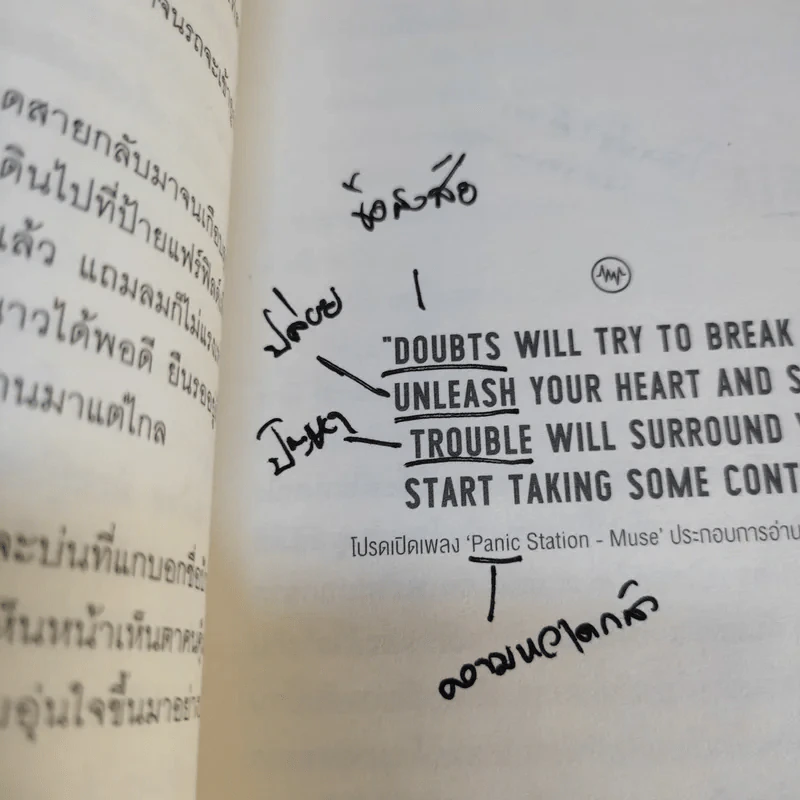 ดสายกลับมาจนเกือบ
ดินไปที่ป้ายแฟร์ฟิลด์
แล้ว แถมลมก็ไม่แรง
าวได้พอดี ยืนรออยู่
านมาแต่ไกล
จะบ่นที่แกบอกชื่อ
ห็นหน้าเห็นตาคน
อุ่นใจขึ้นมาอย่าง
ข้อสงสัย
ปล่อย
"DOUBTS WILL TRY TO BREAK
UNLEASH YOUR HEART AND S
ปัญหา
TROUBLE WILL SURROUND Y
START TAKING SOME CONT
โปรดเปิดเพลง 'Panic Station - Muse' ประกอบการอ่าน
ความหวาดกลัว